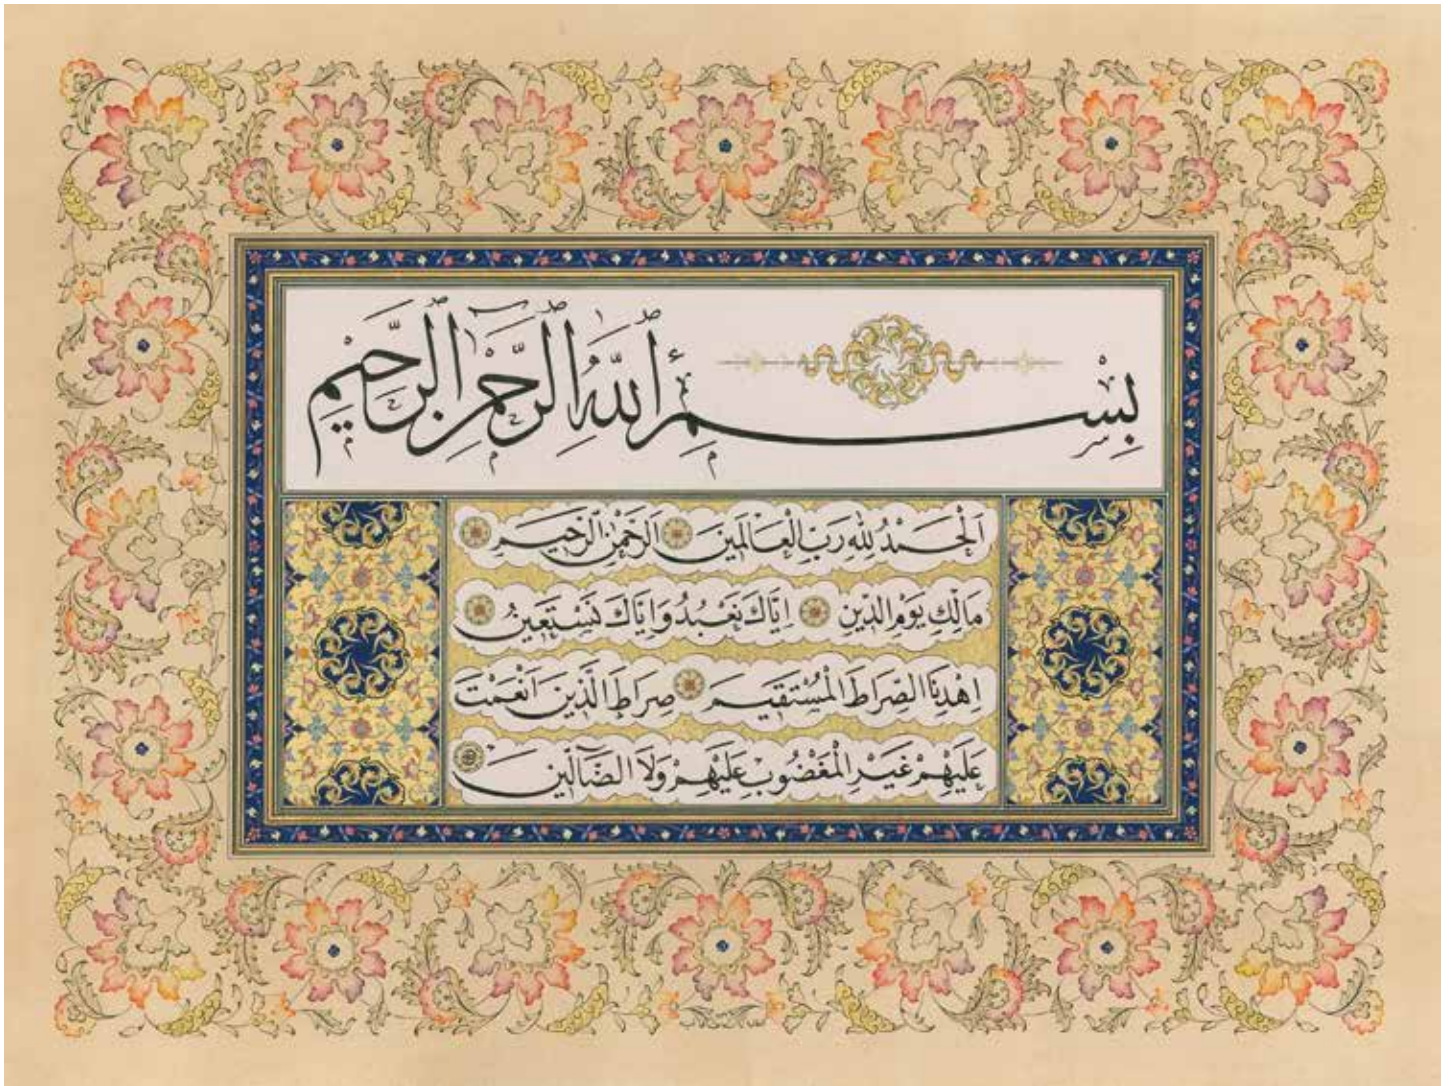 بِسْمِ ٱللَّهِ ٱلرَّحْمٰنِ ٱلرَّحِيمِ
اَلْحَمْدُ لِلّٰهِ رَبِّ الْعَالَمِينَ ۝ اَلرَّحْمٰنِ الرَّحِيمِ ۝
مَالِكِ يَوْمِ الدِّينِ ۝ اِيَّاكَ نَعْبُدُ وَاِيَّاكَ نَسْتَعِينُ ۝
اِهْدِنَا الصِّرَاطَ الْمُسْتَقِيمَ ۝ صِرَاطَ الَّذِينَ اَنْعَمْتَ
عَلَيْهِمْ غَيْرِ الْمَغْضُوبِ عَلَيْهِمْ وَلَا الضَّٓالِّينَ ۝